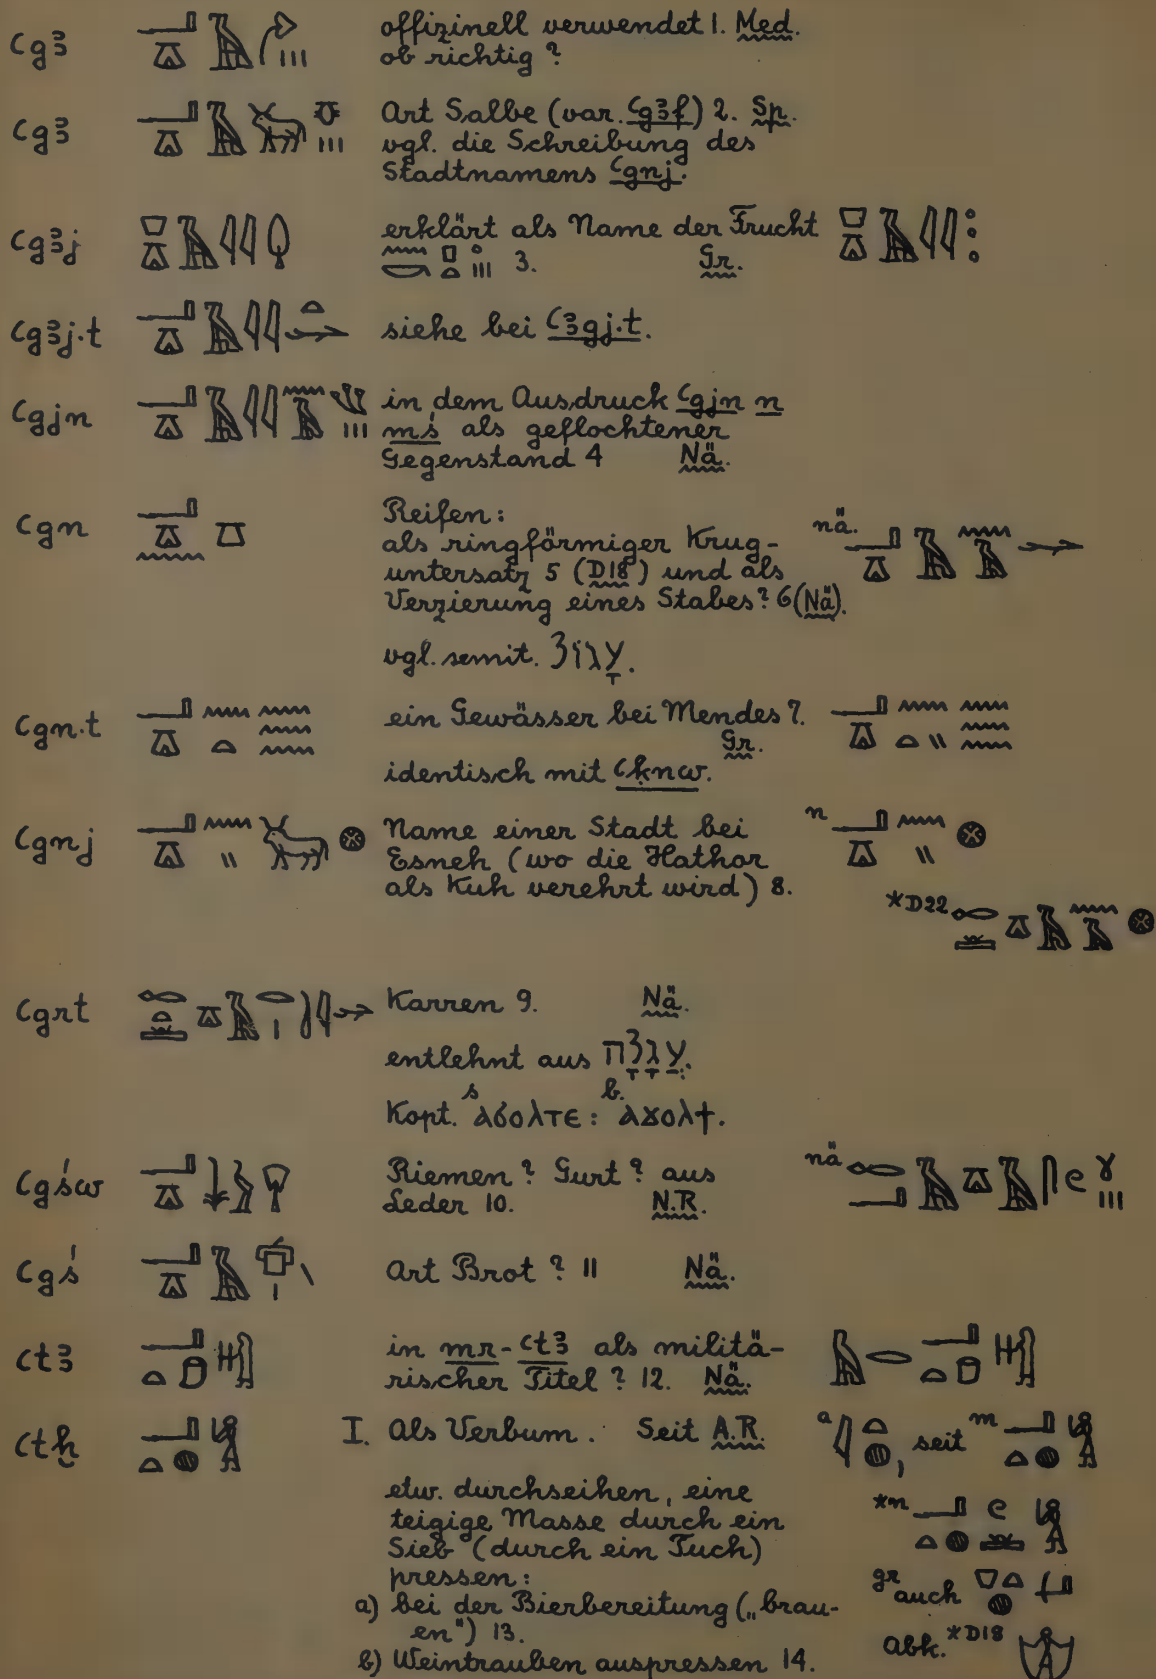 ꜥgꜣ offizinell verwendet 1. Med.
ob richtig?
ꜥgꜣ Art Salbe (var. ꜥgꜣf) 2. Sp.
vgl. die Schreibung des
Stadtnamens ꜥgnj.
ꜥgꜣj erklärt als Name der Frucht
3. Gr.
ꜥgꜣj.t siehe bei ꜥꜣgj.t.
ꜥgjn in dem Ausdruck ꜥgjn n
mś als geflochtener
Gegenstand 4 Nä.
ꜥgn Reifen: nä.
als ringförmiger Krug-
untersatz 5 (D18) und als
Verzierung eines Stabes? 6 (Nä).
vgl. semit. עָגִיל.
ꜥgn.t ein Gewässer bei Mendes 7.
Gr.
identisch mit ꜥḳnw.
ꜥgnj Name einer Stadt bei n
Esneh (wo die Hathor
als Kuh verehrt wird) 8.
*D22
ꜥgrt Karren 9. Nä.
entlehnt aus עֲגָלָה.
Kopt. s ⲁϭⲟⲗⲧⲉ : b. ⲁϫⲟⲗϯ.
ꜥgśw Riemen? Gurt? aus nä
Leder 10. N.R.
ꜥgś Art Brot? 11 Nä.
ꜥtꜣ in mr-ꜥtꜣ als militä-
rischer Titel? 12. Nä.
ꜥtḫ I. Als Verbum. Seit A.R. a , seit m
etw. durchseihen, eine
teigige Masse durch ein *n
Sieb (durch ein Tuch)
pressen: gr auch
a) bei der Bierbereitung („brau-
en") 13. Abk. *D18
b) Weintrauben auspressen 14.